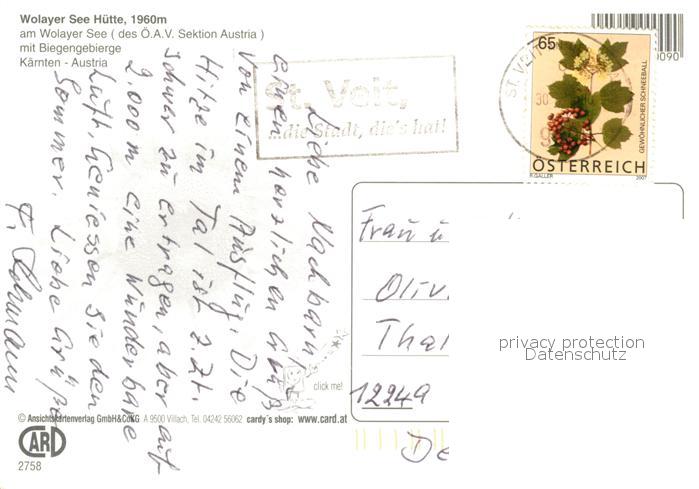 Wolayer See Hütte, 1960m
am Wolayer See ( des Ö.A.V. Sektion Austria )
mit Biegengebierge
Kärnten - Austria
65
0090
ST. VEIT
30
GEWÖHNLICHER SCHNEEBALL
ÖSTERREICH
R.GALLER 2007
St. Veit,
...die Stadt, die's hat!
Liebe Nachbarn!
einen herzlichen Gruß
von einem Ausflug. Die
Hitze im Tal ist z.Zt.
schwer zu ertragen, aber auf
2.000 m eine wunderbare
Luft. Geniessen Sie den
Sommer. Liebe Grüße
Frau u
Oliv
Thal
12249
De
privacy protection
Datenschutz
click me!
© Ansichtskartenverlag GmbH&CoKG A 9500 Villach, Tel. 04242 56062 cardy's shop: www.card.at
CARD
2758